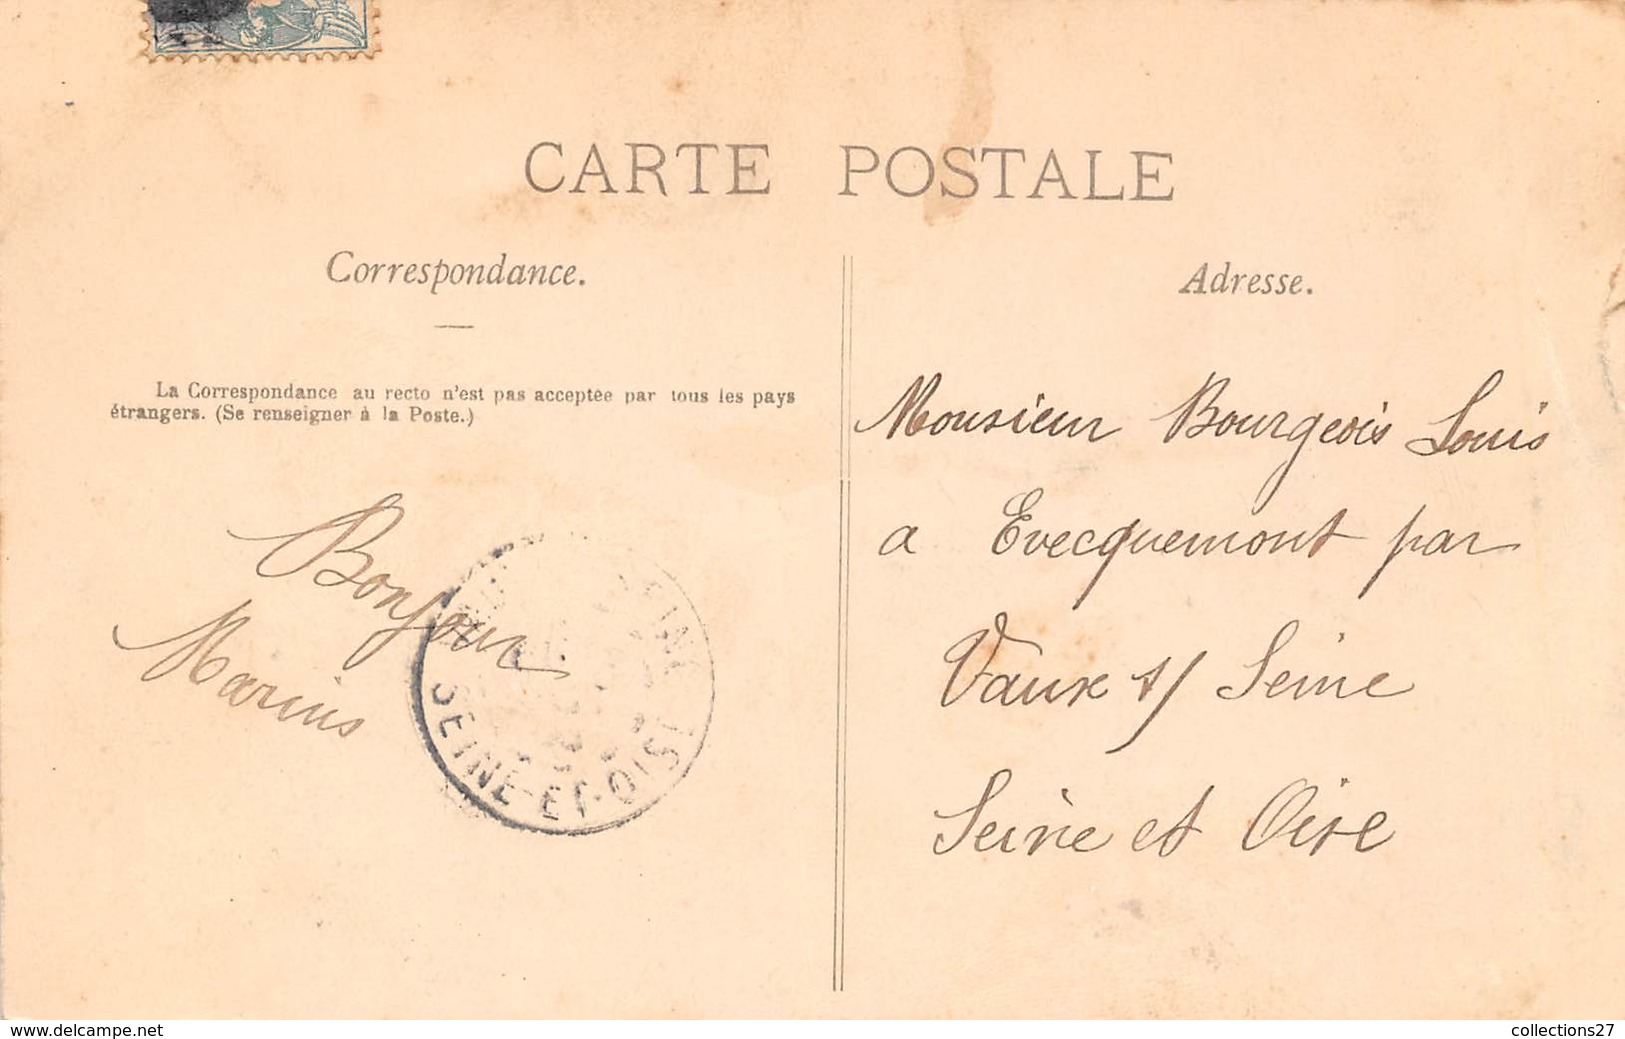 CARTE POSTALE
Correspondance.
La Correspondance au recto n'est pas acceptée par tous les pays
étrangers. (Se renseigner à la Poste.)
Bonjour
Marius
SEINE-ET-OISE
Adresse.
Monsieur Bourgeois Louis
a Evecquemont par
Vaux s/ Seine
Seine et Oise
www.delcampe.net
collections27